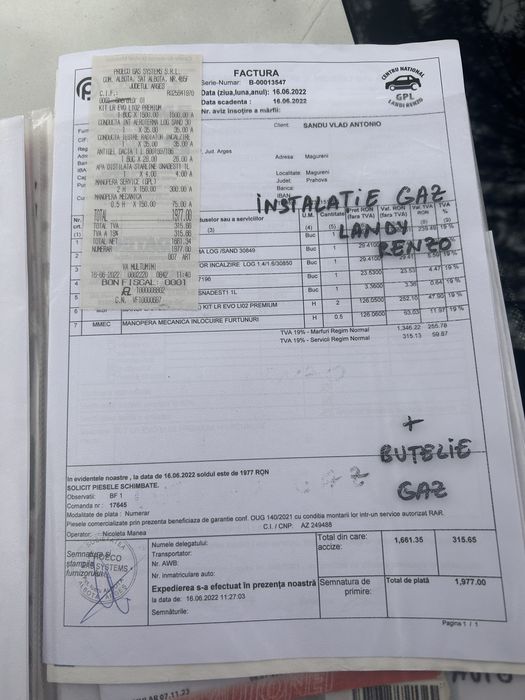 PROECO GAS SYSTEMS S.R.L.
COM. ALBOTA, SAT ALBOTA, NR.465F
JUDETUL ARGES
C.I.F.: RO25941870
KIT LR EVO L102 PREMIUM
1 BUC X 1500.00 1500.00 A
CONDUCTA INT AEROTERMA LOG SAND 30
1 X 35.00 35.00 A
CONDUCTA IESIRE RADIATOR INCALZIRE
1 X 35.00 35.00 A
ANTIGEL DACIA 1 L 6001997196
1 BUC X 28.00 28.00 A
APA DISTILATA STARLINE SNADESTI 1L
1 X 4.00 4.00 A
MANOPERA SERVICE (GPL)
2 H X 150.00 300.00 A
MANOPERA MECANICA
0.5 H X 150.00 75.00 A
TOTAL 1977.00
TOTAL TVA 315.66
TVA A 19% 315.66
TOTAL NET 1661.34
NUMERAR 1977.00
007 ART
VA MULTUMIM!
16-06-2022 0002220 0842 11:40
BON FISCAL: 0001
FACTURA
Serie-Numar: B-00013547
Data (ziua,luna,anul): 16.06.2022
Data scadenta : 16.06.2022
Nr. aviz însoțire a mărfii:
CENTRU NATIONAL
GPL
LANDI RENZO
Client: SANDU VLAD ANTONIO
Jud. Arges
Adresa: Magureni
Localitate: Magureni
Judet: Prahova
Banca:
IBAN:
INSTALATIE GAZ
LANDY
RENZO
Nr. crt.
uselor sau a serviciilor
U.M. Cantitate Pret RON (fara TVA) Val. RON (fara TVA) TVA RON TVA %
(3) (4) (5)
Buc 1 19 %
MA LOG /SAND 30849 Buc 1 29.4100 19 %
OR INCALZIRE LOG 1.4/1.6/30850 Buc 1 29.4100 19 %
7196 Buc 1 23.5300 23.53 4.47 19 %
SNADESTI 1L Buc 1 3.3600 3.36 0.64 19 %
KIT LR EVO L102 PREMIUM H 2 126.0500 252.10 47.90 19 %
7 MMEC MANOPERA MECANICA INLOCUIRE FURTUNURI H 0.5 126.0600 63.03 11.97 19 %
TVA 19% - Marfuri Regim Normal 1,346.22 255.78
TVA 19% - Servicii Regim Normal 315.13 59.87
+
BUTELIE
GAZ
In evidentele noastre , la data de 16.06.2022 soldul este de 1977 RON
SOLICIT PIESELE SCHIMBATE.
Observatii: BF 1
Comanda nr : 17645
Modalitate de plata : Numerar
Piesele comercializate prin prezenta beneficiaza de garantie conf. OUG 140/2021 cu conditia montarii lor intr-un service autorizat RAR.
Operator: Nicoleta Manea C.I / CNP. AZ 249488
Semnatura si stampila furnizorului
Numele delegatului:
Transportator:
Nr. AWB:
Nr. inmatriculare auto:
Expedierea s-a efectuat în prezența noastră
la data de: 16.06.2022 11:27:03
Semnăturile:
Total din care: 1,661.35 315.65
accize:
Semnatura de primire:
Total de plată 1,977.00
Pagina 1 / 1